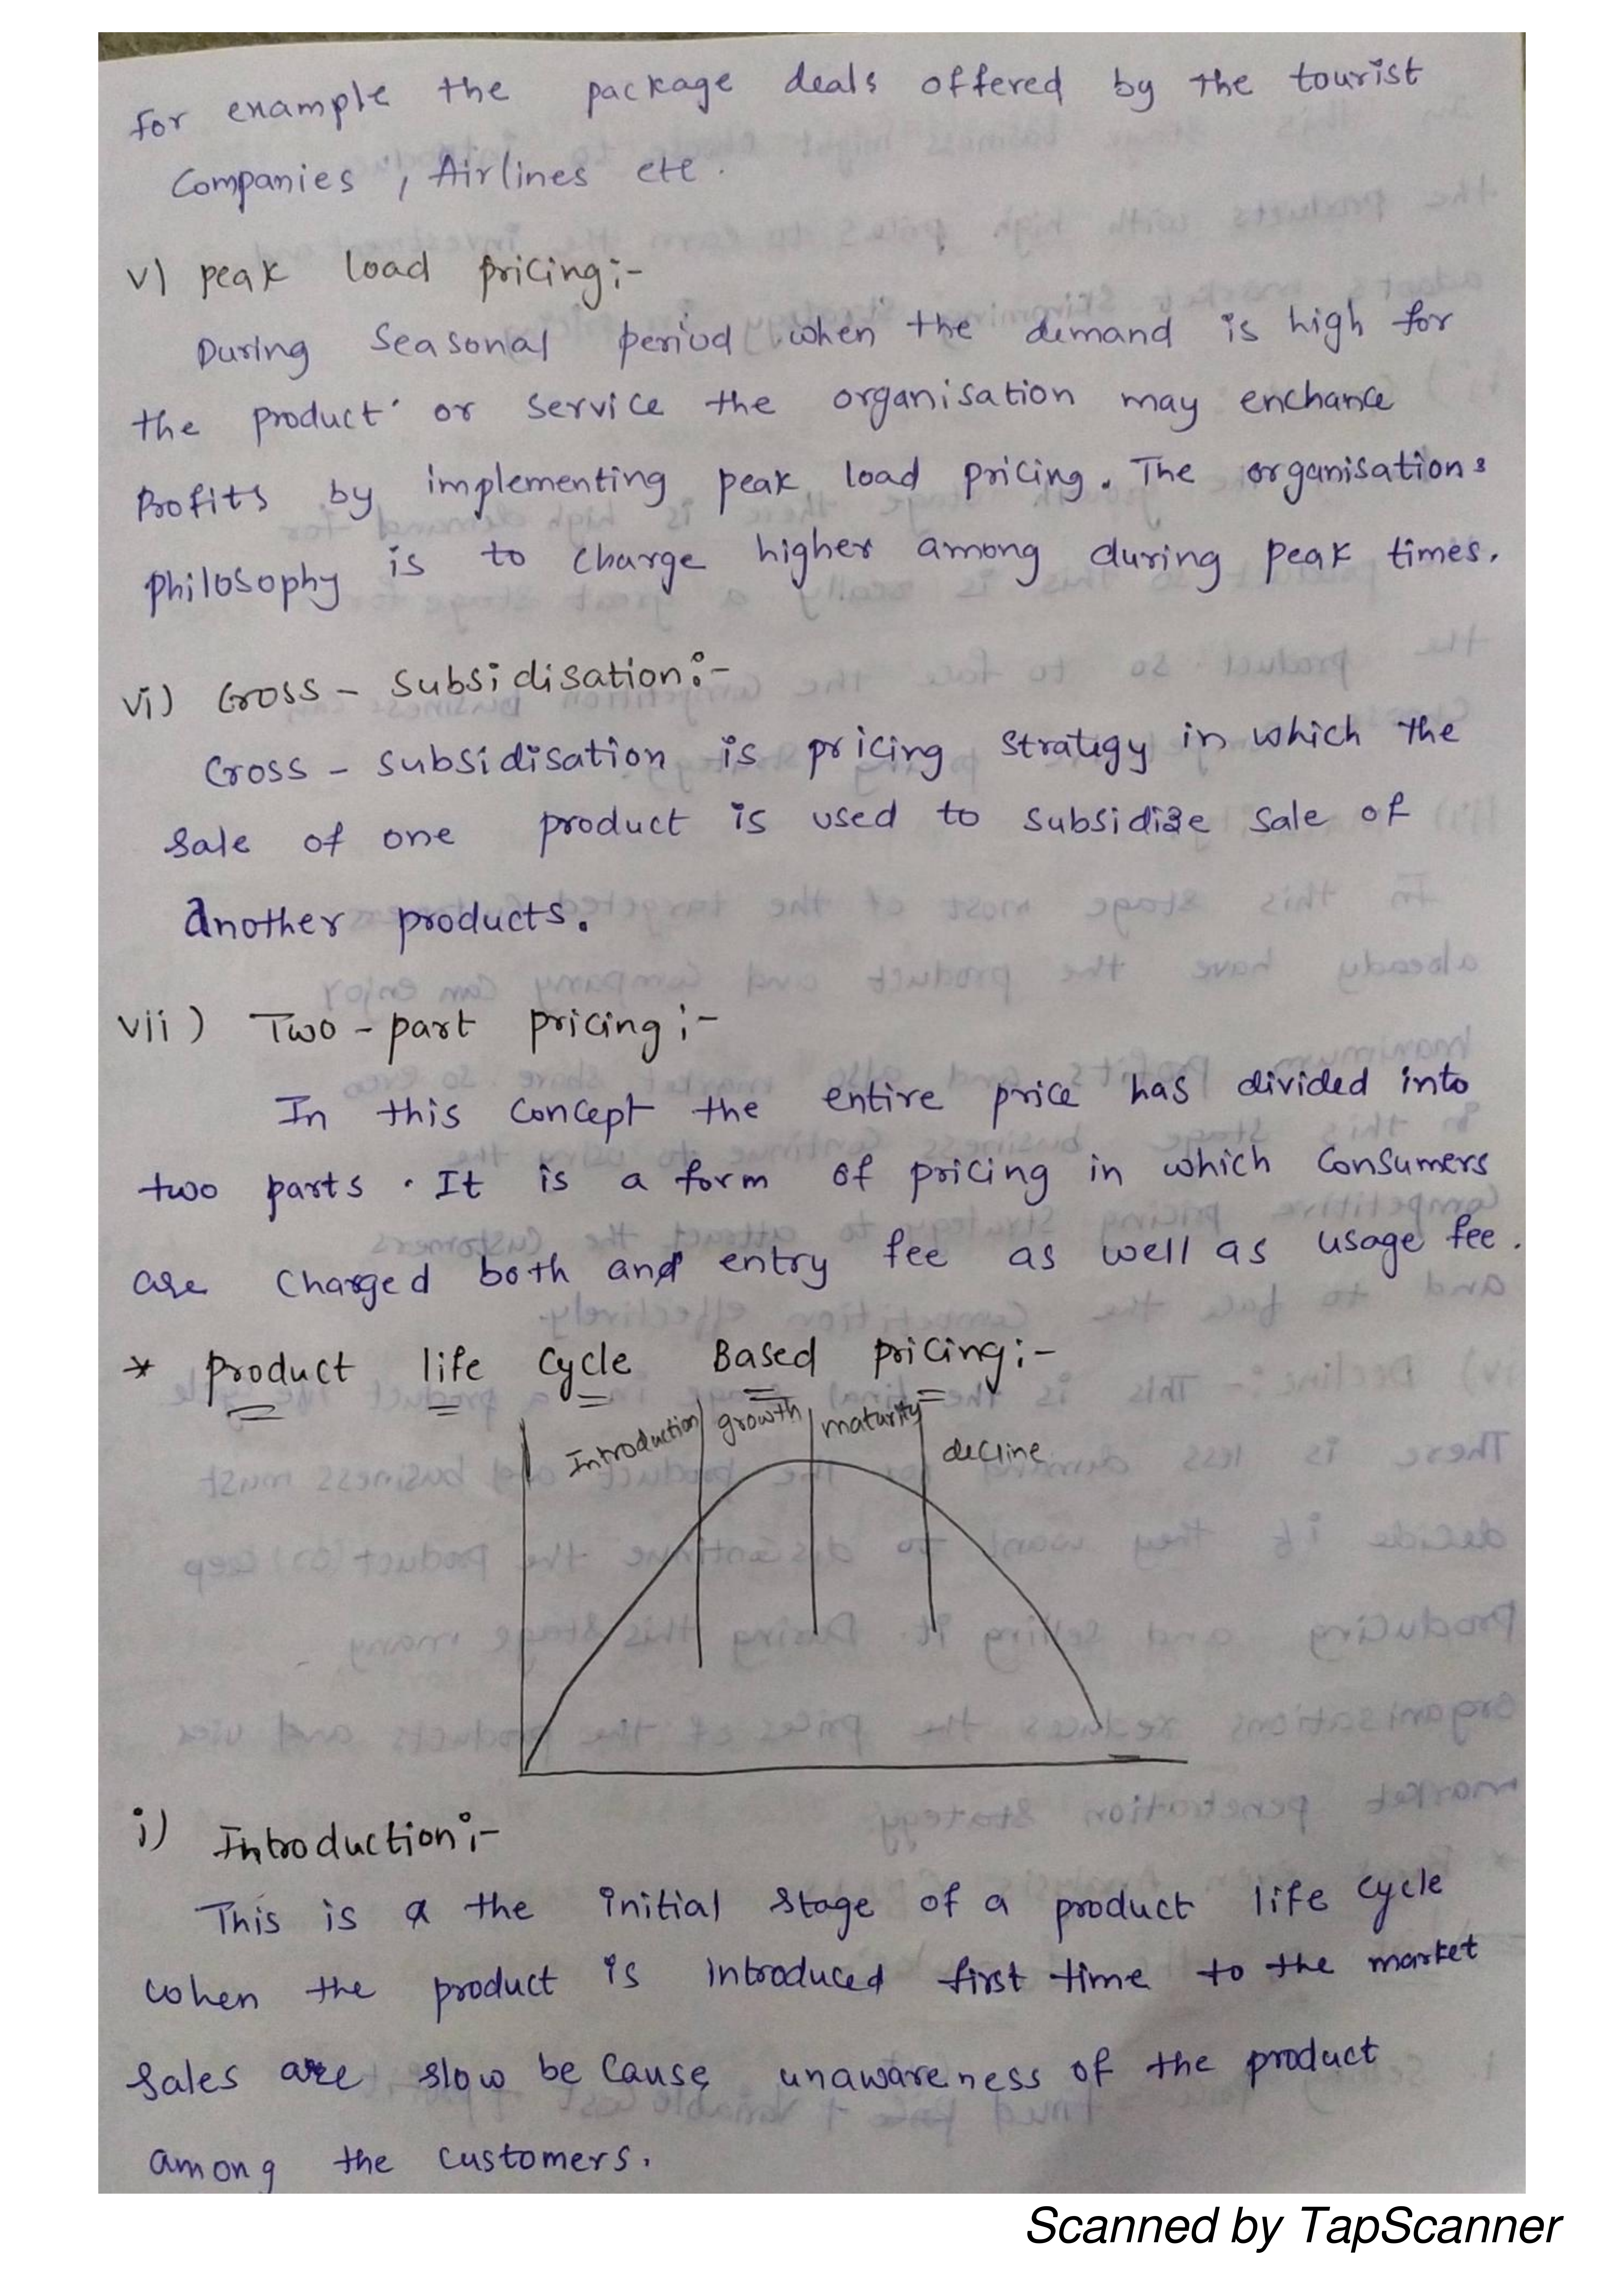 for example the package deals offered by the tourist
Companies , Airlines ete .
v) peak load pricing:-
During seasonal period when the demand is high for
the product or service the organisation may enchance
Profits by implementing peak load pricing. The organisations
philosophy is to charge higher among during peak times.
vi) Cross - subsidisation:-
Cross - subsidisation is pricing strategy in which the
sale of one product is used to subsidize sale of
another products.
vii) Two - part pricing:-
In this concept the entire price has divided into
two parts . It is a form of pricing in which consumers
are charged both and entry fee as well as usage fee .
* product life cycle Based pricing:-
Introduction growth maturity decline
i) Introduction:-
This is a the initial stage of a product life cycle
when the product is introduced first time to the market
sales are slow be cause unawareness of the product
among the customers.
Scanned by TapScanner